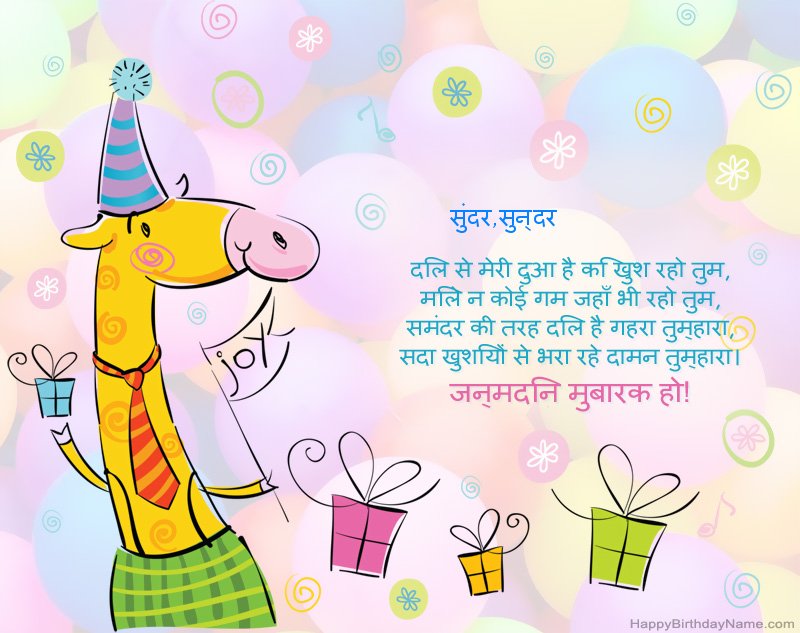 सुंदर,सुन्दर
दिल से मेरी दुआ है कि खुश रहो तुम,
मिले न कोई गम जहाँ भी रहो तुम,
समंदर की तरह दिल है गहरा तुम्हारा,
सदा खुशियों से भरा रहे दामन तुम्हारा।
जन्मदिन मुबारक हो!
joy
HappyBirthdayName.com